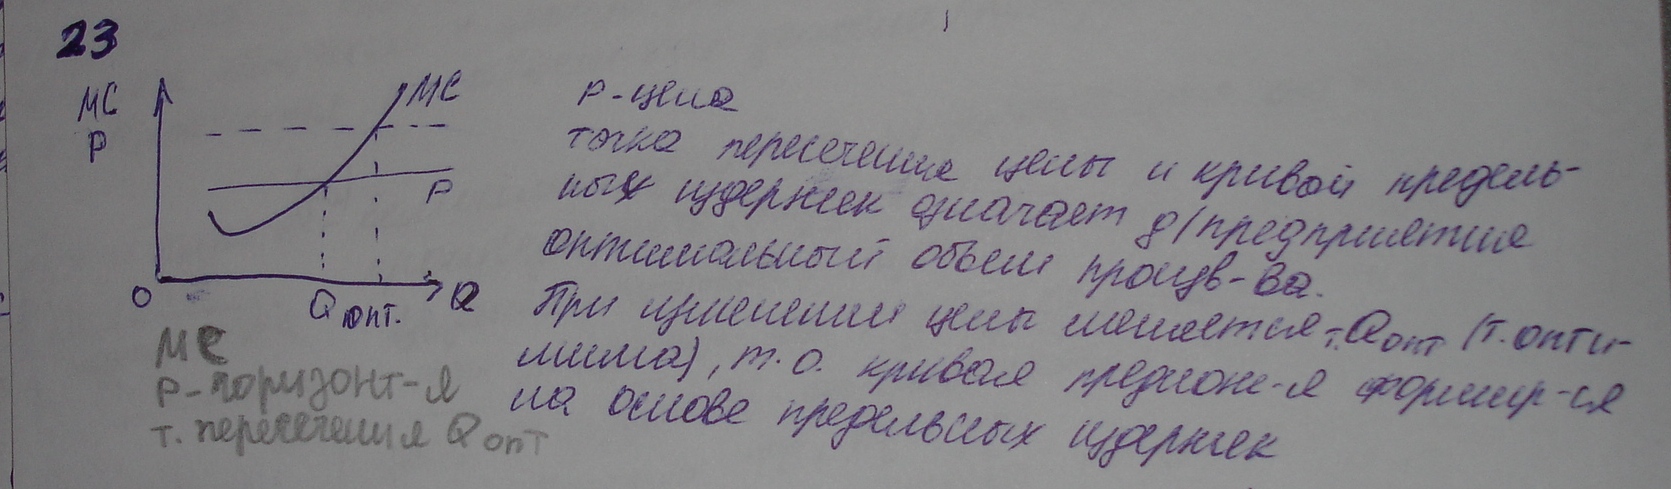 23
MC
P
MC
P
O
Qопт.
Q
MC
P-горизонт-я
т. пересечения Qопт
P-цена
точка пересечения цены и кривой предель-
ных издержек означает д/предприятия
оптимальный объем произв-ва.
При изменении цены меняется т.Qопт (т.опти-
мима), т.о. кривая предлож-я формир-ся
на основе предельных издержек